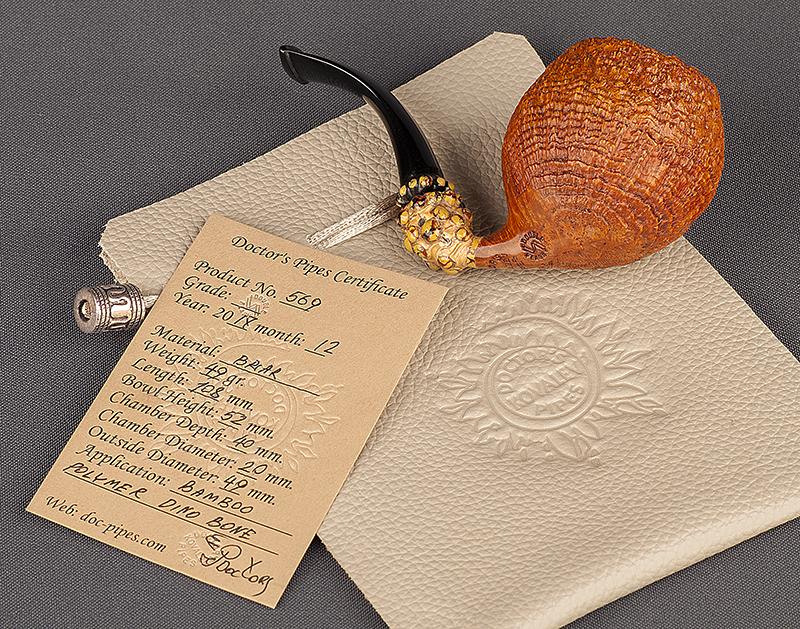 Doctor's Pipes Certificate
Product No. 569
Grade:
Year: 20 IX month: 12
Material: BRIAR
Weight: 49 gr.
Length: 128 mm.
Bowl Height: 52 mm.
Chamber Depth: 40 mm.
Chamber Diameter: 20 mm.
Outside Diameter: 49 mm.
Application: BAMBOO
POLYMER DINO BONE
Web: doc-pipes.com
DOCTOR'S
PIPES